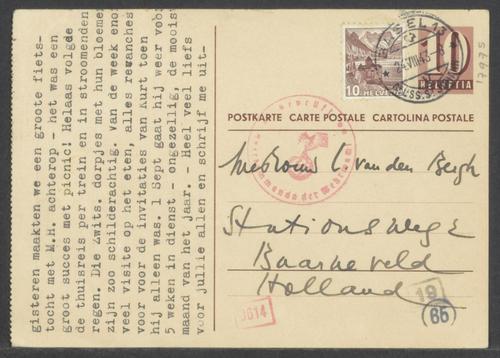 gisteren maakten we een groote fiets-
tocht met M.H. achterop - het was een
groot succes met picnic! Helaas volgde
de thuisreis per trein en in stroomenden
regen. Die Zwits. dorpjes met hun bloemen
zijn zoo schilderachtig. Van de week enorm
veel visite op het eten, alles revanches
voor voor de invitaties van Kurt toen
hij alleen was. 1 Sept gaat hij weer voor
5 weken in dienst - ongezellig, de mooiste
maand van het jaar. - Heel veel liefs
voor jullie allen en schrijf me uit-
BASEL 13
VIII 43
10
HELVETIA
10
HELVETIA
17975
POSTKARTE CARTE POSTALE CARTOLINA POSTALE
Geprüft
Oberkommando der Wehrmacht
Mevrouw C. van den Bergh
Stationsweg 2
Barneveld
Holland
19
65
3614